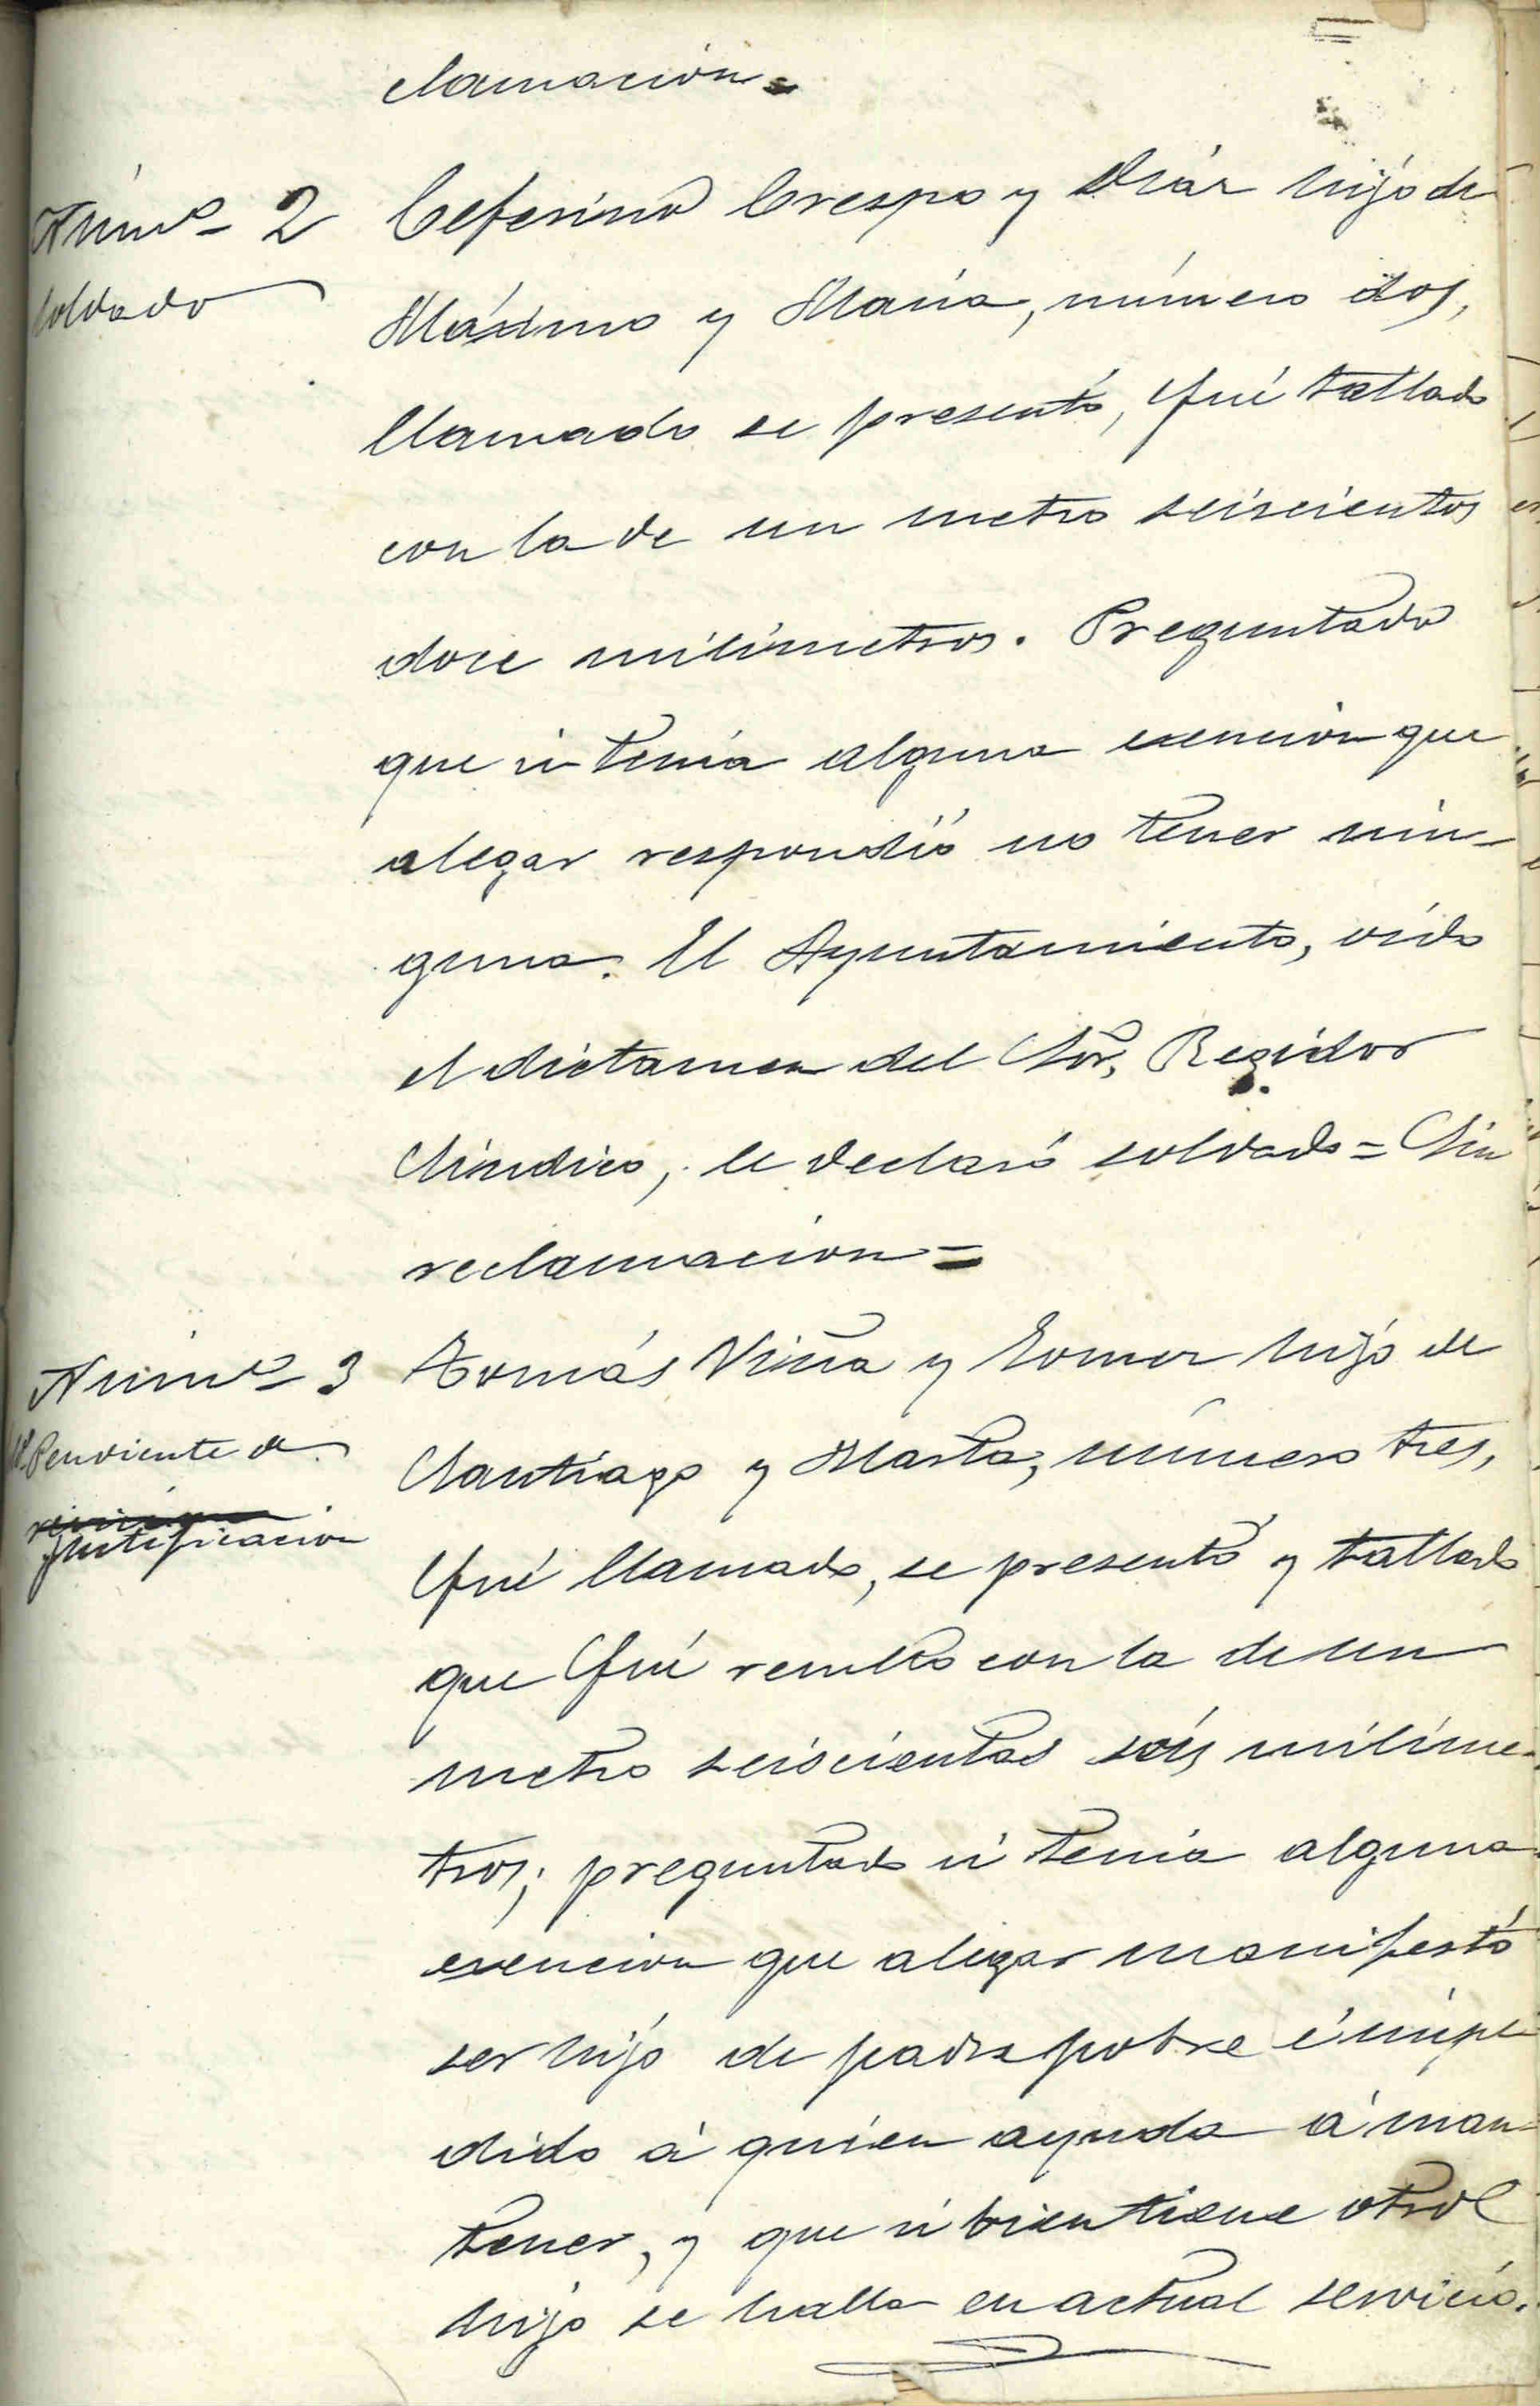 clamación=
Núm.º 2
Soldado
Ceferino Crespo y Diáz hijo de
Máximo y María, número dos,
llamado se presentó, fué tallado
con la de un metro seiscientos
doce milímetros. Preguntado
que si tenía alguna exencion que
alegar respondió no tener nin-
guna. El Ayuntamiento, oido
el dictamen del Sor. Regidor
Síndico, le declaró soldado = Sin
reclamacion =
Núm.º 3
Pendiente de
justificacion
Tomás Viña y hijo de
Santiago y Marta, número tres,
fué llamado, se presentó y tallado
que fué resultó con la de un
metro seiscientos seis milíme-
tros; preguntado si tenía alguna
exencion que alegar manifestó
ser hijo de padre pobre é impe
dido á quien ayuda á man-
tener, y que si bien tiene otro
hijo se halla en actual servicio.